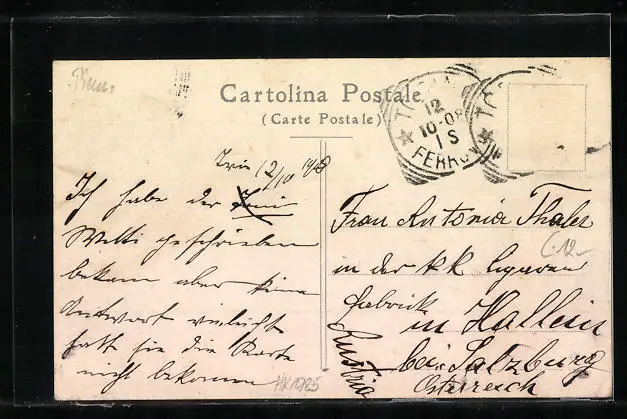 Cartolina Postale
(Carte Postale)
12
10-08
1 S
FERROV
12/10 1908
Ich habe der
Welti geschrieben
bekam aber keine
Antwort vieleicht
hatt sie die Karte
nicht bekommen
HK1785
Frau Antonia Thaler
in der kk Cigaren
fabrick
in Hallein
bei Salzburg
Österreich
Austria
(.12.-